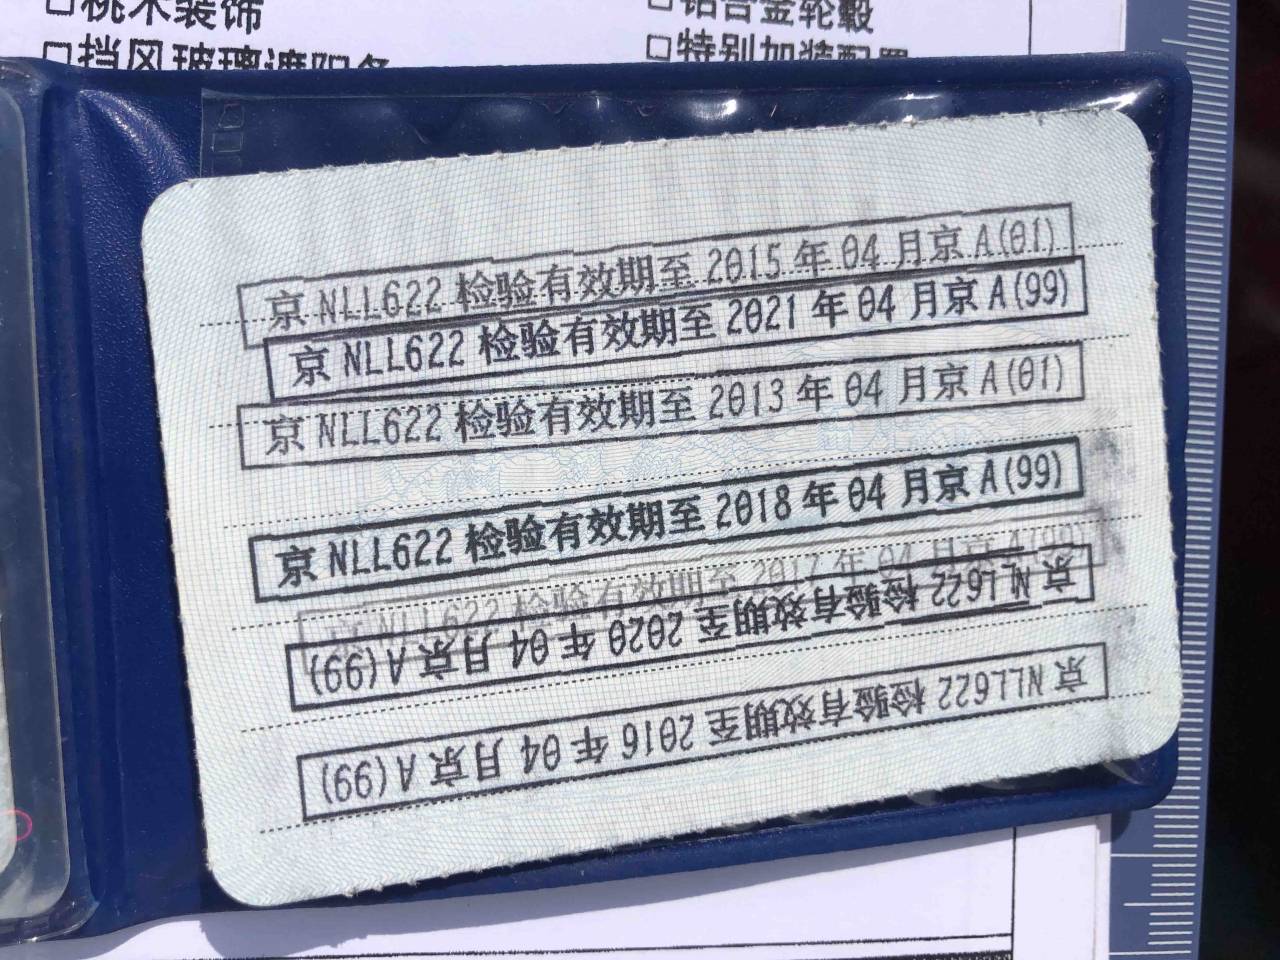 □桃木装饰
□铝合金轮毂
□挡风玻璃遮阳条
□特别加装配置
京NLL622 检验有效期至 2015 年 04 月京 A(01)
京NLL622 检验有效期至 2021 年 04 月京 A(99)
京NLL622 检验有效期至 2013 年 04 月京 A(01)
京NLL622 检验有效期至 2018 年 04 月京 A(99)
京NLL622 检验有效期至 2017 年 04 月京 A(99)
京NLL622 检验有效期至 2020 年 04 月京 A(99)
京NLL622 检验有效期至 2016 年 04 月京 A(99)